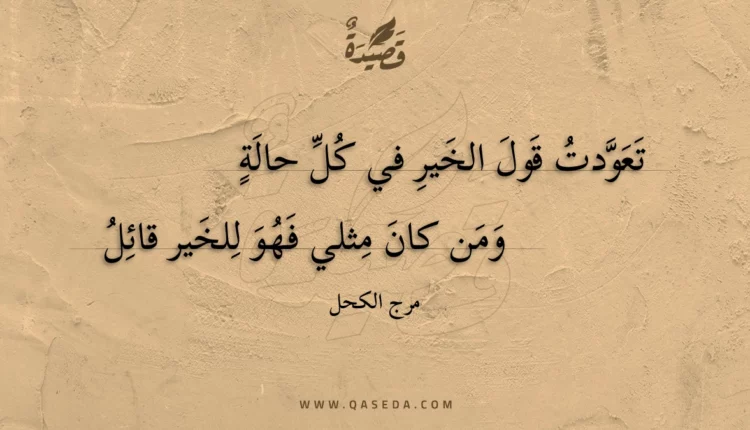 قَصِيدَةٌ
تَعَوَّدتُ قَولَ الخَيرِ في كُلِّ حالَةٍ
وَمَن كانَ مِثلي فَهُوَ لِلخَير قائِلُ
مرج الكحل
WWW.QASEDA.COM